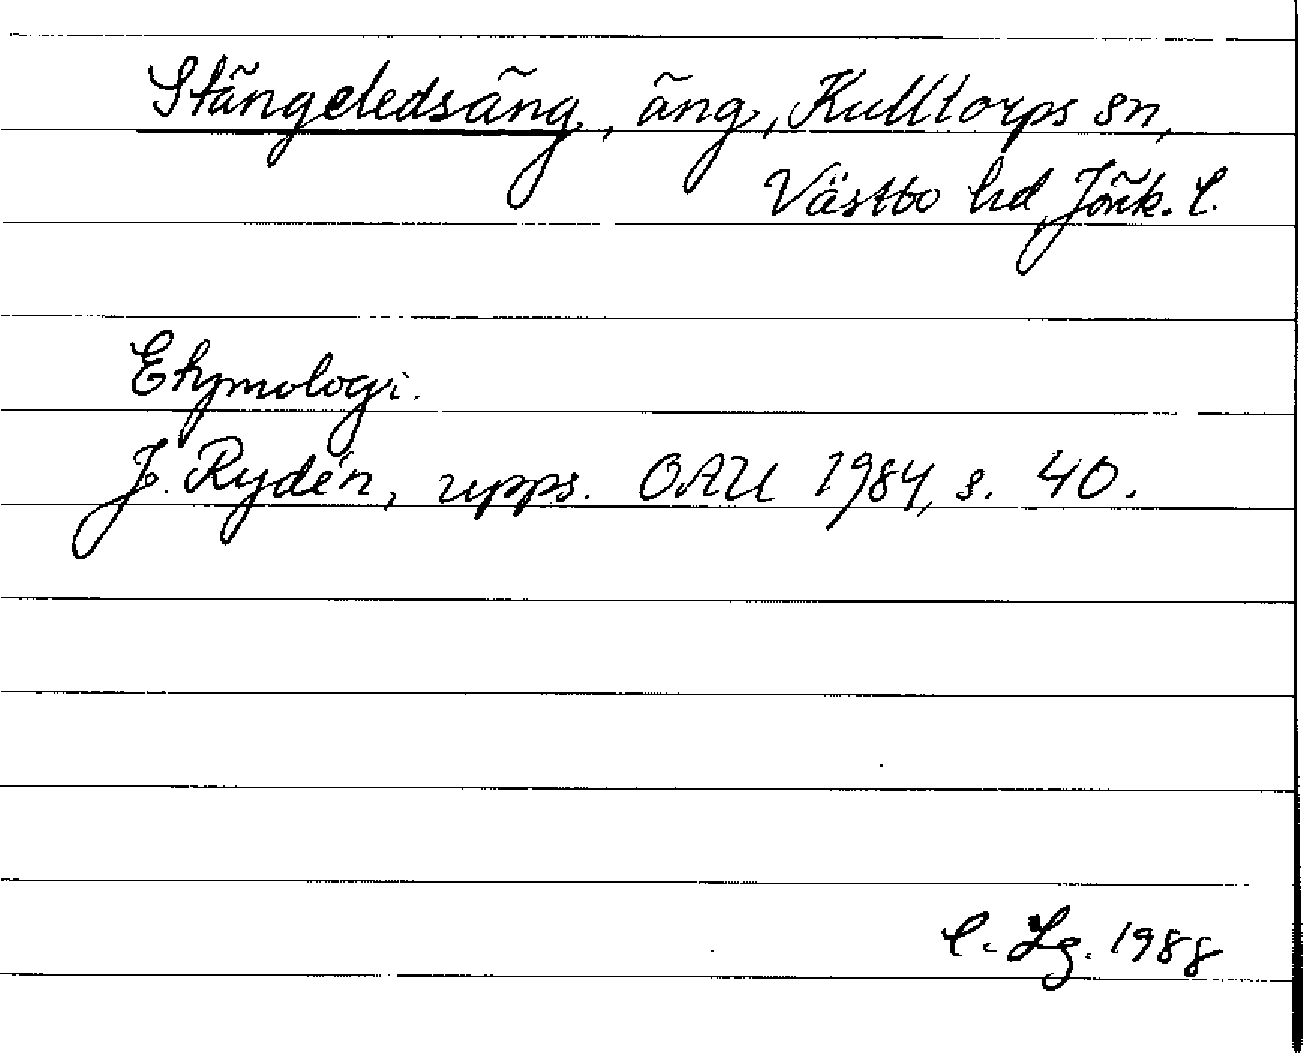 Stängeledsäng, äng, Kulltorps sn,
Västbo hd, Jönk. l.
Etymologi.
J. Rydén, upps. OAU 1984, s. 40.
C. Lg. 1988